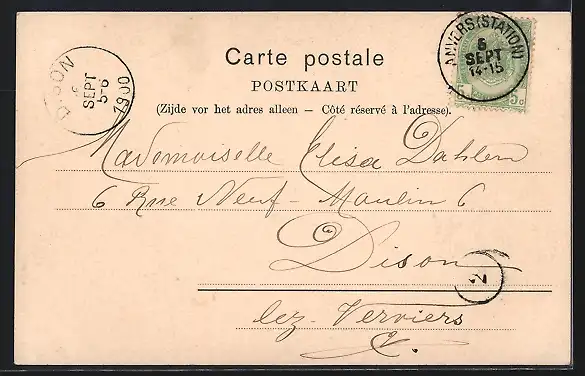 Carte postale
POSTKAART
(Zijde vor het adres alleen – Côté réservé à l'adresse).
DISON
6
SEPT
5-6
1900
ANVERS (STATION)
6
SEPT
14-15
5c
Mademoiselle Elisa Dahlem
6 Rue Neuf-Moulin 6
Dison
2
lez-Verviers